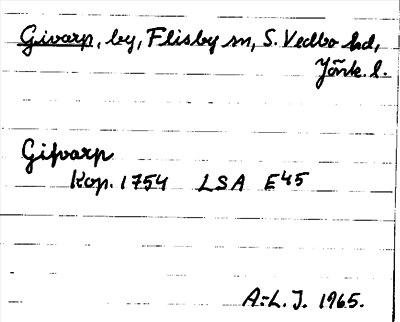 Givarp, by, Flisby sn, S. Vedbo hd,
Jönk. l.
Gifvarp
Kop. 1754 LSA E45
A.-L. J. 1965.